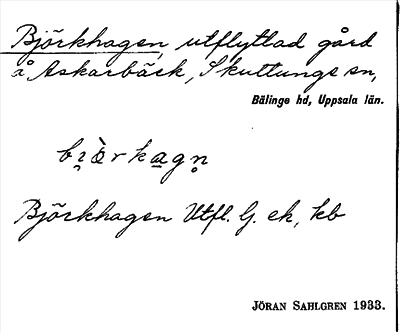 Björkhagen, utflyttad gård
å Askarbäck, Skuttunge sn,
Bälinge hd, Uppsala län.
bi̯ö̀rkagn̥
Björkhagen Utfl. G. ek, kb
JÖRAN SAHLGREN 1933.